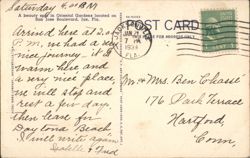 Saturday 4.00 P.M
A beauty spot in Oriental Gardens located on
San Jose Boulevard, Jax, Fla.
POST CARD
Arrived here at 2.00
P.M. we had a very
nice journey. it is
warm here, and
a very nice place,
we will stop and
rest a few days.
then leave for
Daytona Beach.
I will write again
Fred
JAN 21
7 PM
FLA.
Mr & Mrs. Ben Chasse
176 Park Terrace
Hartford
Conn.